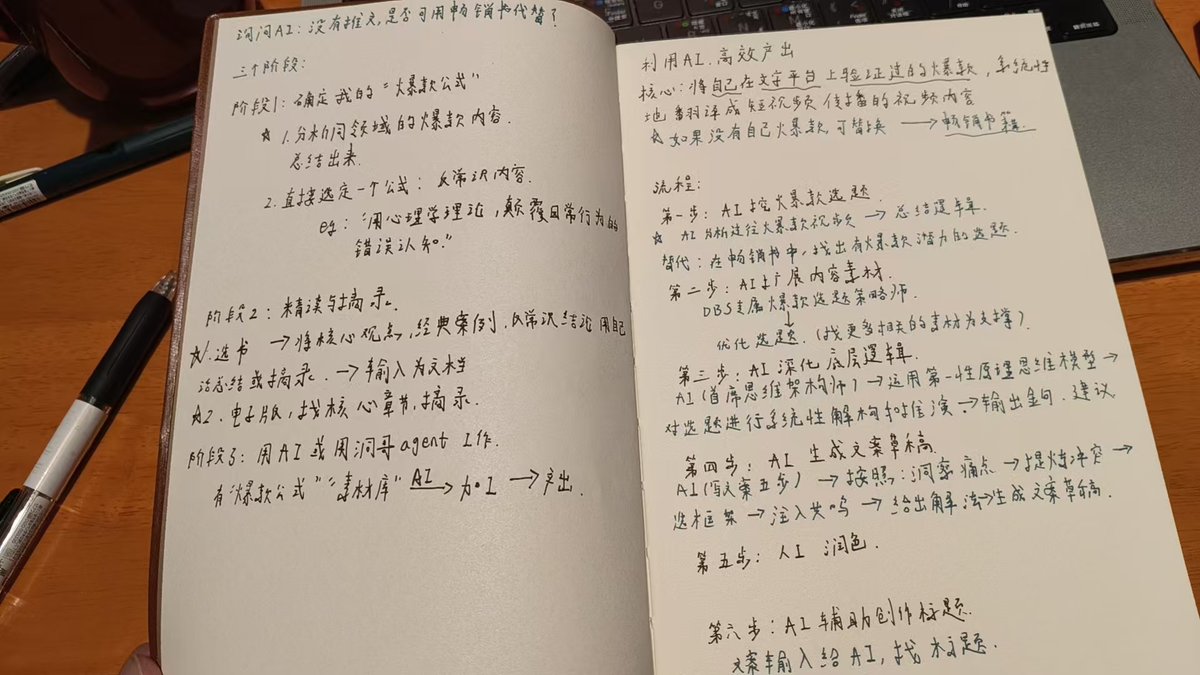 问问AI：没有推文，是否可用畅销书代替？
三个阶段：
阶段1：确定我的“爆款公式”
☆ 1.分析同领域的爆款内容.
总结出来.
2.直接选定一个公式：反常识内容.
如：“用心理学理论，颠覆日常行为的
错误认知.”
阶段2：精读与摘录.
☆1.选书 →将核心观点,经典案例.反常识结论 用自己
总结或摘录. →输入为文档
☆2.电子版，找核心章节，摘录.
阶段3：用AI或用洞哥agent工作.
有“爆款公式”“素材库” AI→ 加工 →产出.
利用AI.高效产出
核心：将自己在文字平台上验证过的爆款，系统性
地翻译成短视频传播的视频内容
☆如果没有自己爆款,可替换 →畅销书籍.
流程：
第一步：AI挖火爆款选题.
☆ AI分析过往火爆款视频 → 总结逻辑.
替代：在畅销书中，找出有火爆款潜力的选题.
第二步：AI扩展内容素材.
DBS专属爆款选题策略师.
↓
优化选题.（找更多相关的素材为支撑）.
第三步：AI深化底层逻辑.
AI（首席思维架构师）→运用第一性原理思维模型→
对选题进行系统性解构和推演→输出金句.建议
第四步：AI 生成文案草稿.
AI（写文案五步） →按照：洞察痛点→提炼冲突→
选框架→注入共鸣→给出解法→生成文案草稿.
第五步：人工 润色.
第六步：AI辅助创作标题.
文案输入给AI，找标题.